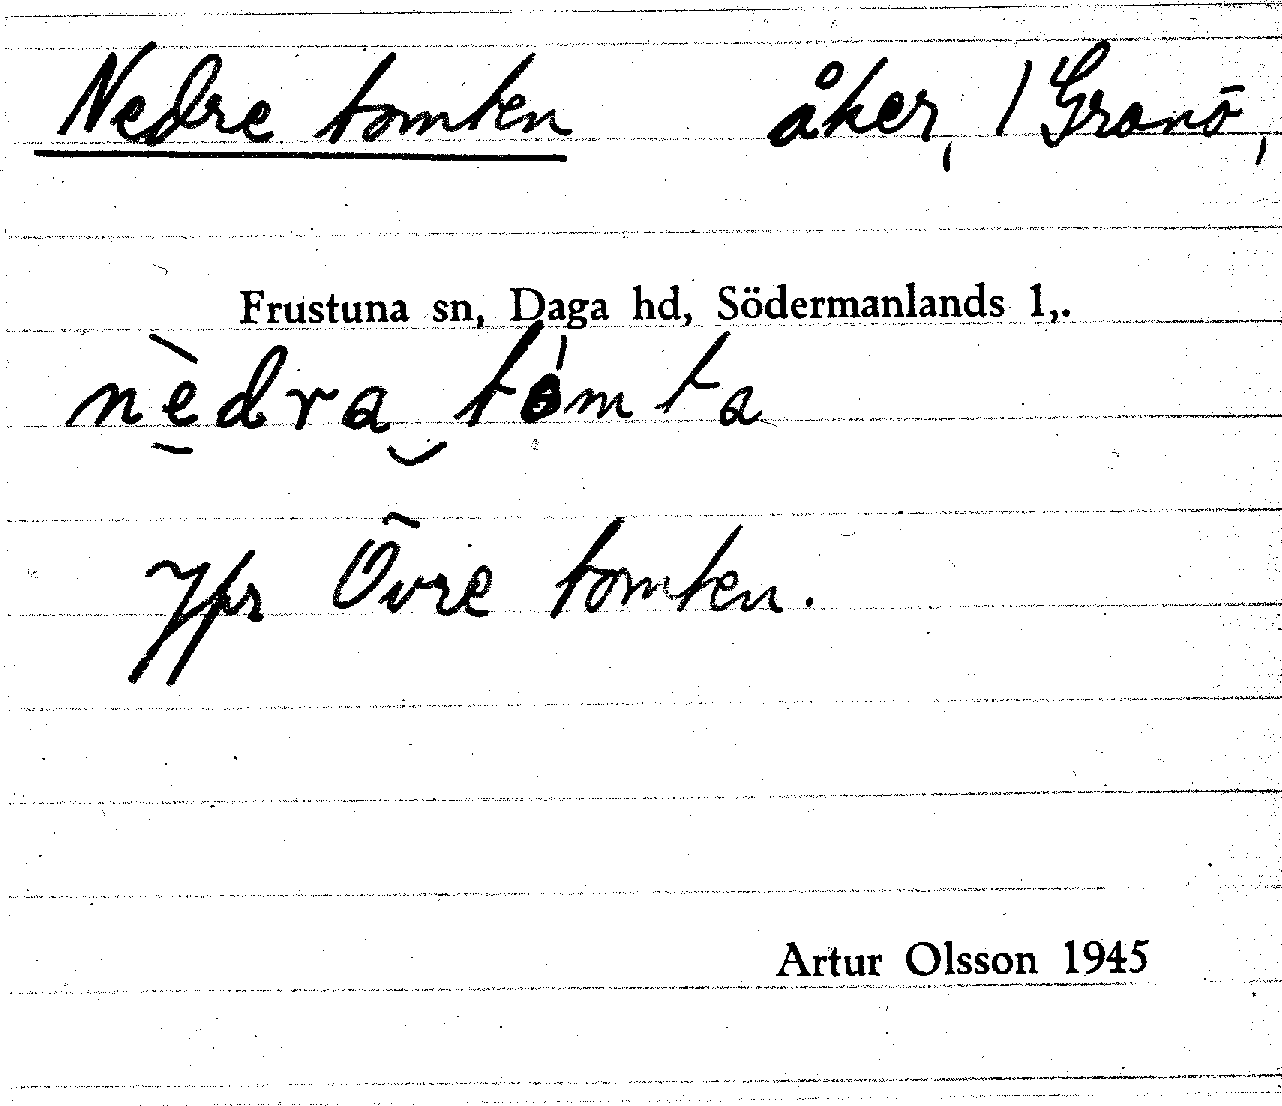 Nedre tomten åker, 1 Granö,
Frustuna sn, Daga hd, Södermanlands l,.
nèdra tomta
Jfr Övre tomten.
Artur Olsson 1945